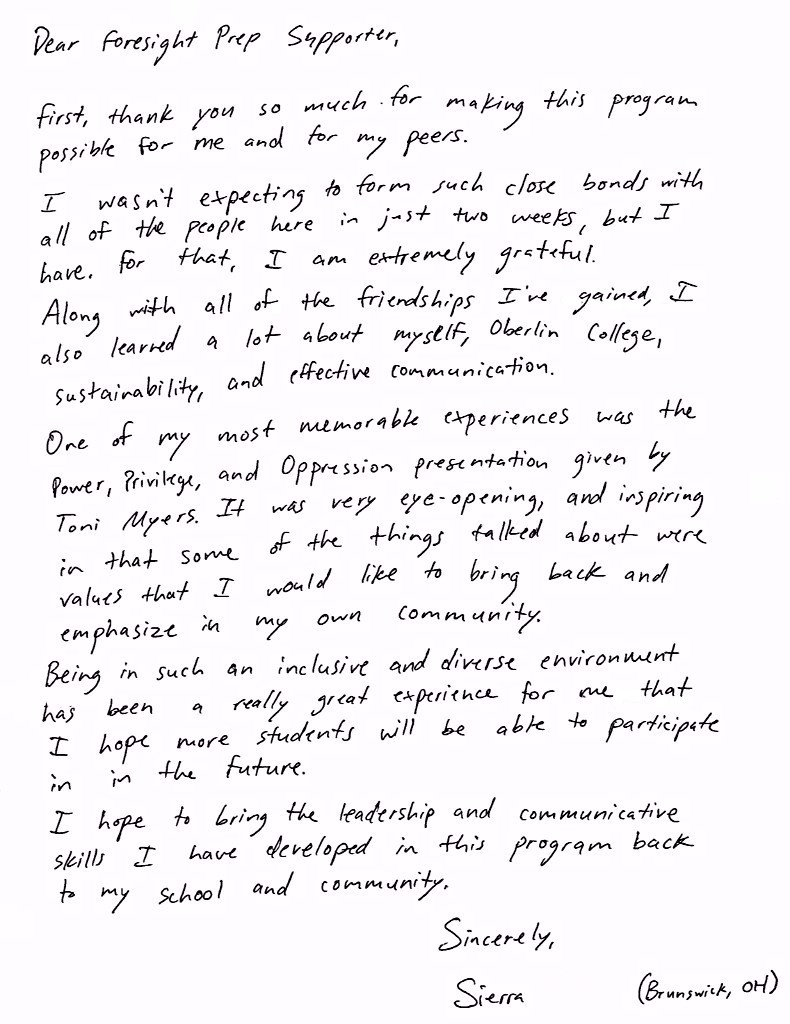 Dear Foresight Prep Supporter,
First, thank you so much for making this program
possible for me and for my peers.
I wasn't expecting to form such close bonds with
all of the people here in just two weeks, but I
have. For that, I am extremely grateful.
Along with all of the friendships I've gained, I
also learned a lot about myself, Oberlin College,
sustainability, and effective communication.
One of my most memorable experiences was the
Power, Privilege, and Oppression presentation given by
Toni Myers. It was very eye-opening, and inspiring
in that some of the things talked about were
values that I would like to bring back and
emphasize in my own community.
Being in such an inclusive and diverse environment
has been a really great experience for me that
I hope more students will be able to participate
in in the future.
I hope to bring the leadership and communicative
skills I have developed in this program back
to my school and community.
Sincerely,
Sierra (Brunswick, OH)